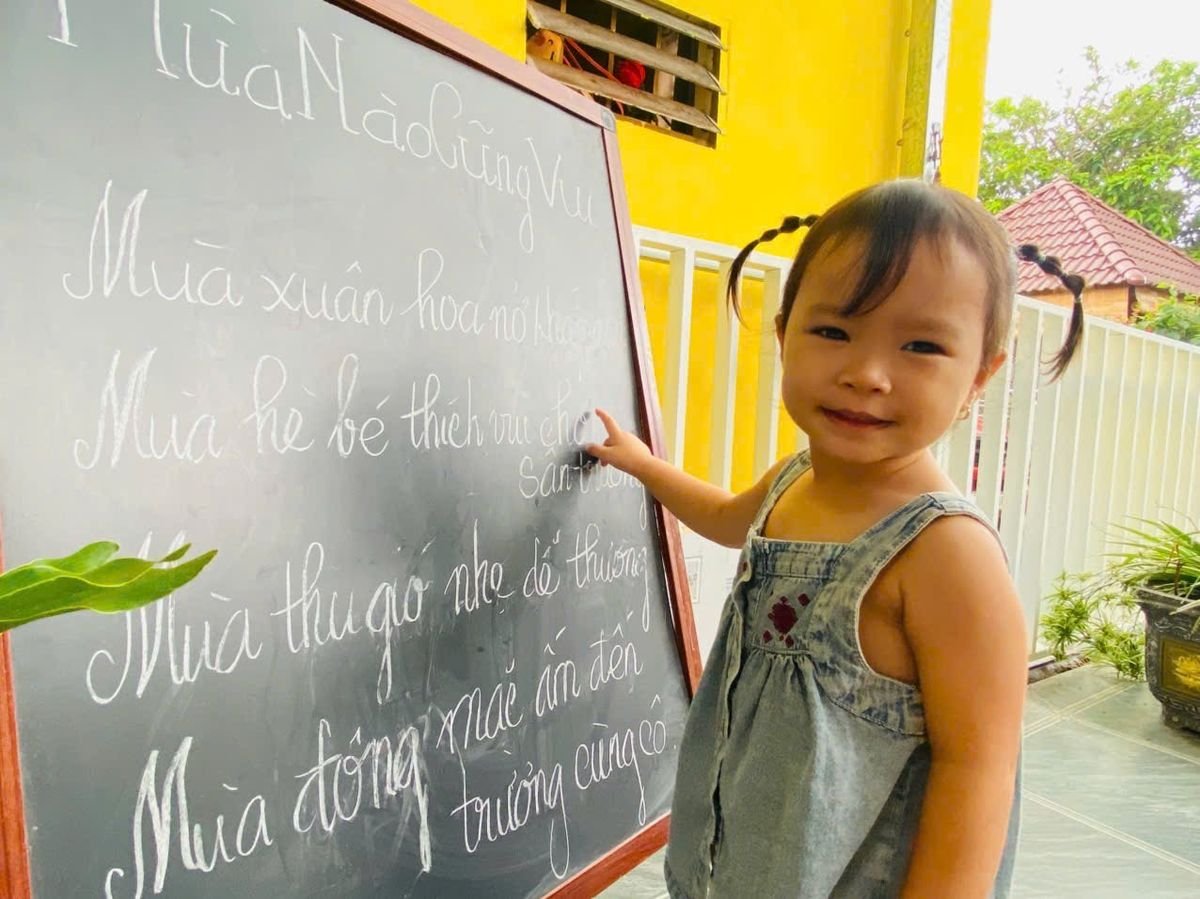 Mùa Nào Cũng Vui
Mùa xuân hoa nở
Mùa hè bé thích vui
sân trường
Mùa thu gió nhẹ dễ thương
Mùa đông mặc ấm đến
trường cùng cô.